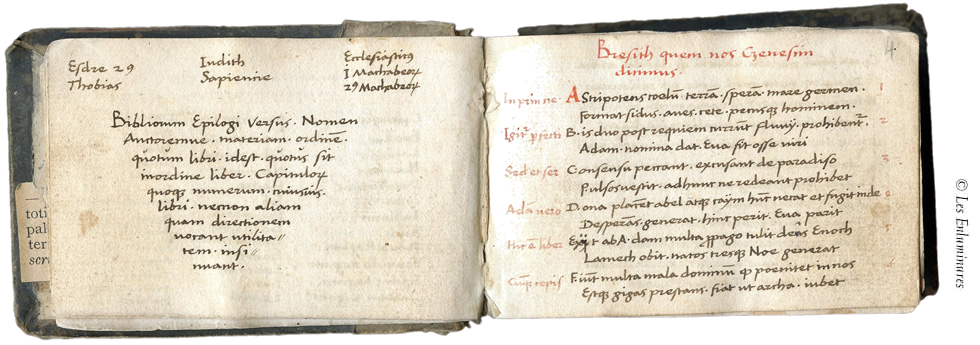 Esdre 29
Thobias
Iudith
Sapiencie
Ecclesiasticꝰ
I Machabeoꝝ
29 Machabeoꝝ
Bibliorum Epilogi Versus. Nomen
Auctoremue. materiam. ordinē.
quotum libri. idest. quotus sit
inordine liber. Capituloꝝ
quoqꝫ numerum. cuiusuis
libri. necnon aliam
quam directionem
uocant utilita//
tem. insi//
nuant.
4
Bresith quem nos Genesim
dicimus.
In princ
Astripotens coelū. terrā. sperā. mare germen. 1
Format sidus. aues. rete. pecusqꝫ hominem.
Igit̃ pfecti
B. is duo post requiem currūt fluuij. prohibent̃. 2
Adam. nomina dat. Eua fit osse uiri
Sed et ser
C. onsensu peccant. excusant de paradiso 3
Pulsos uestit. adhunc ne redeant prohibet
Adā vero
D. ona placēt abel atqꝫ caym hūc necat et fugit inde
Desperās. generat. hinc perit. Eua parit
Hic ē liber
t abA. dam multa ꝓpago tulit Enoch 5
Lamech obit. natos tresqꝫ Noe generat
Cūqꝫ cepis
F. iūt multa mala dominū qꝫ poenitet in nos
Estqꝫ gigas prestans. fiat ut archa. iubet
© Les Enluminures
toti
pal
ter
scr